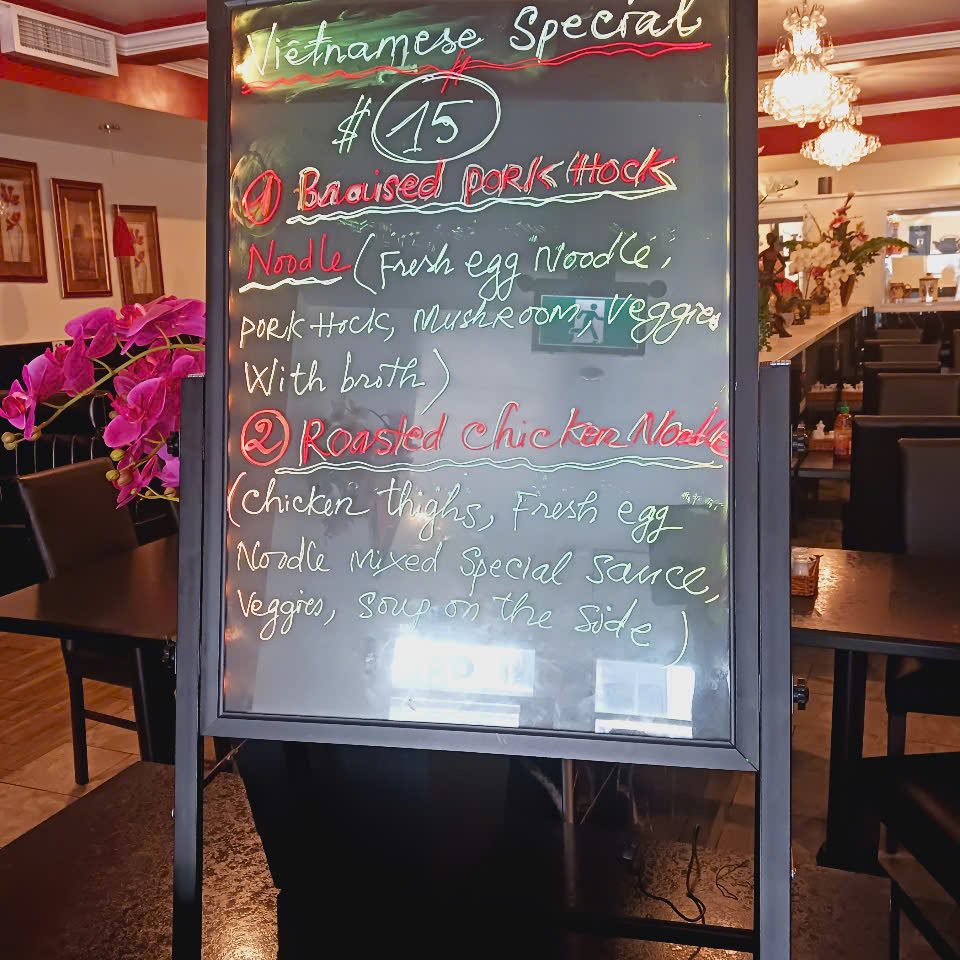 Vietnamese Special
$ 15
① Braised PORK Hock
Noodle (Fresh egg Noodle,
PORK Hock, MUSHROOM, Veggies
With broth)
② Roasted chicken Noodle
(chicken thighs, Fresh egg
Noodle Mixed Special Sauce,
Veggies, Soup on the Side)